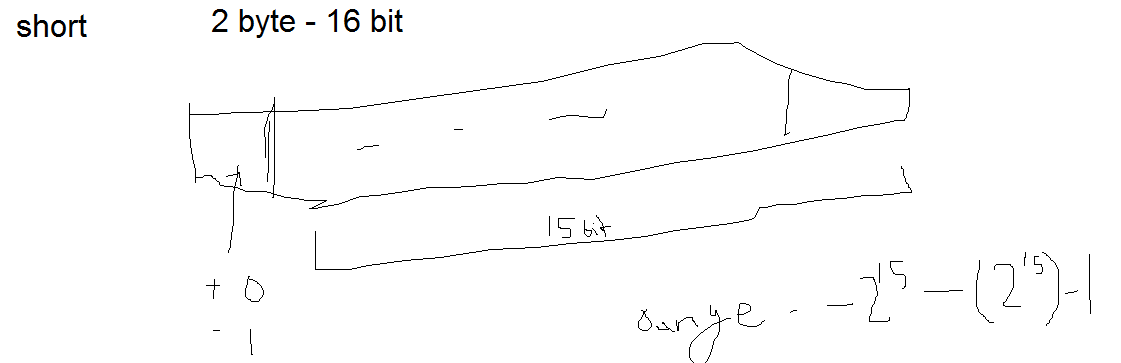 short 2 byte - 16 bit
15 bit
+ 0
- 1
range - -2^15 - (2^15)-1